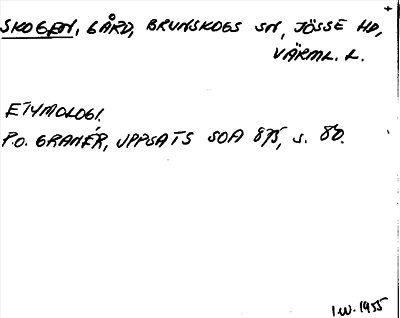 SKOGEN, GÅRD, BRUNSKOGS SN, JÖSSE HD,
VÄRML. L.
ETYMOLOGI.
P.O. GRANÉR, UPPSATS SOA 875, S. 80.
1955